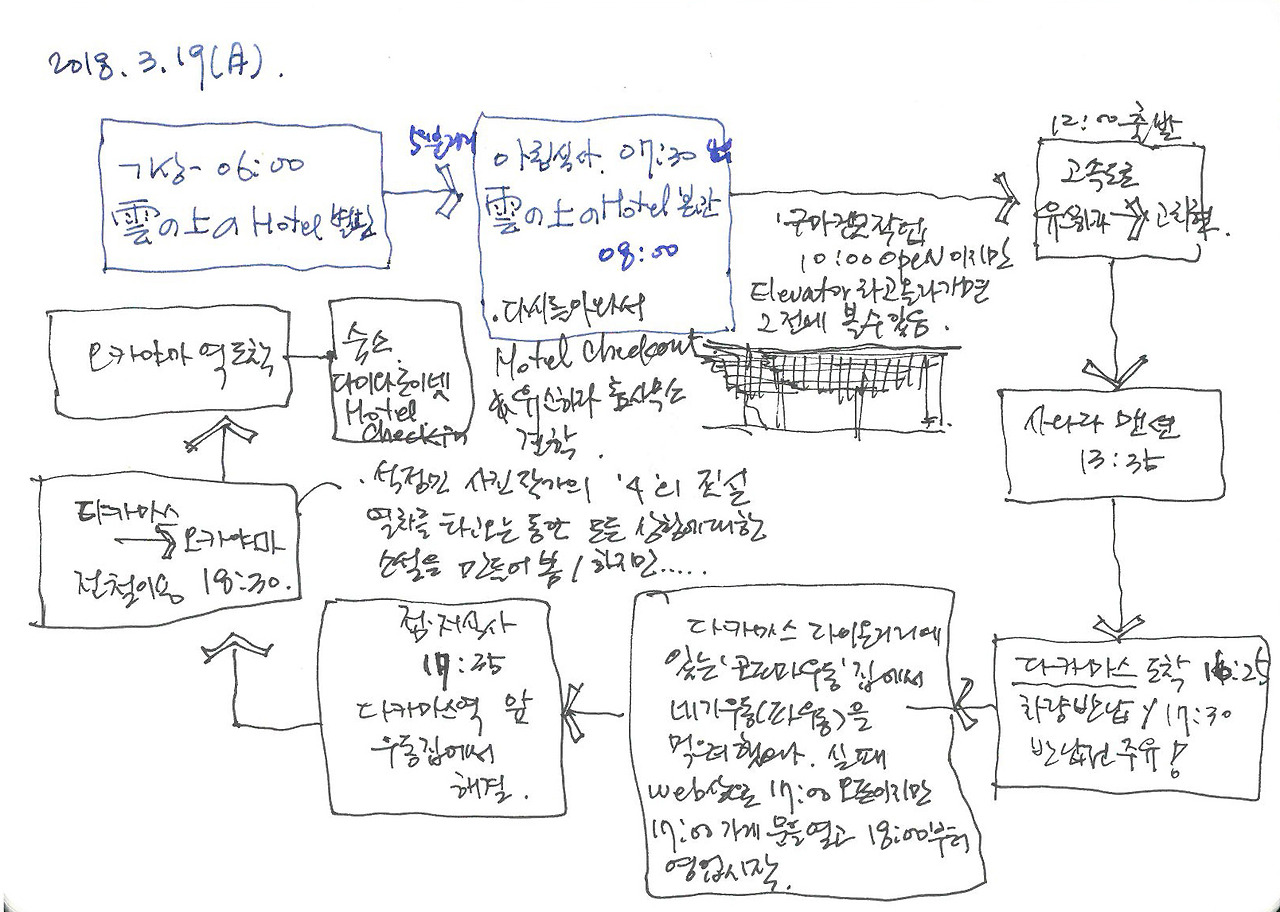 2018. 3. 19(月).
기상- 06:00
雲の上のHotel 별관
5분거리
아침식사. 07:30
雲の上のHotel 본관
08:00
.다시돌아와서
Hotel checkout.
유스하라
견학.
'쿠마겐고작업
10:00 OPEN이지만
Elevator 타고올라가면
그전에 볼수있음.
12:00출발
고속도로
유스하라 → 고치현.
사누키
13:35
다카마스 도착 16:25
차량반납 / 17:30
반납전 주유!
다카마스 라이온거리에
있는 '코다마우동' 집에서
네기우동(파우동)을
먹으려했으나. 실패
web상으로 17:00 오픈이지만
17:00 가게 문을열고 18:00부터
영업시작.
점.저식사
17:35
다카마스역 앞
우동집에서
해결.
다카마스
→ 오카야마
전철이용 18:30.
.석정민 사진작가의 '4'의 전설
열차를 타고오는 동안 모든 상황에대한
소설을 만들어봄 / 하지만.....
오카야마 역도착
숙소.
다이와로이넷
Hotel
checkin